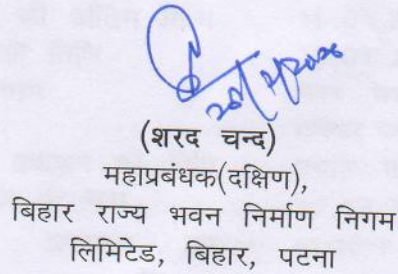 (शरद चन्द)
महाप्रबंधक(दक्षिण),
बिहार राज्य भवन निर्माण निगम
लिमिटेड, बिहार, पटना